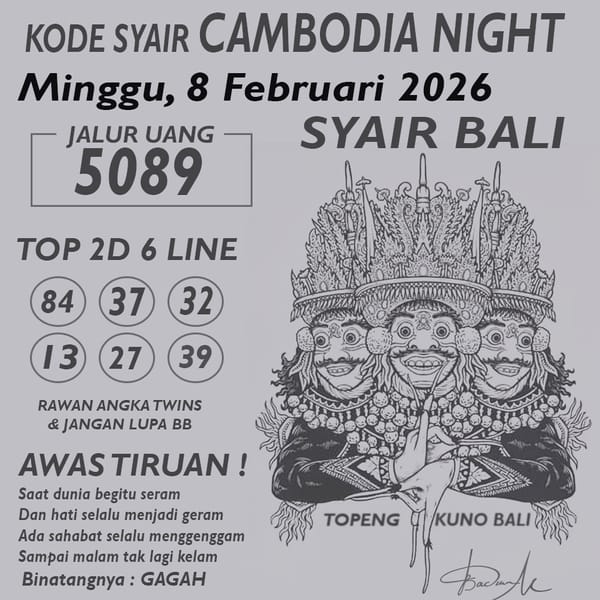 KODE SYAIR CAMBODIA NIGHT
Minggu, 8 Februari 2026
JALUR UANG
5089
SYAIR BALI
TOP 2D 6 LINE
84 37 32
13 27 39
RAWAN ANGKA TWINS
& JANGAN LUPA BB
AWAS TIRUAN !
Saat dunia begitu seram
Dan hati selalu menjadi geram
Ada sahabat selalu menggenggam
Sampai malam tak lagi kelam
Binatangnya : GAGAH
TOPENG KUNO BALI